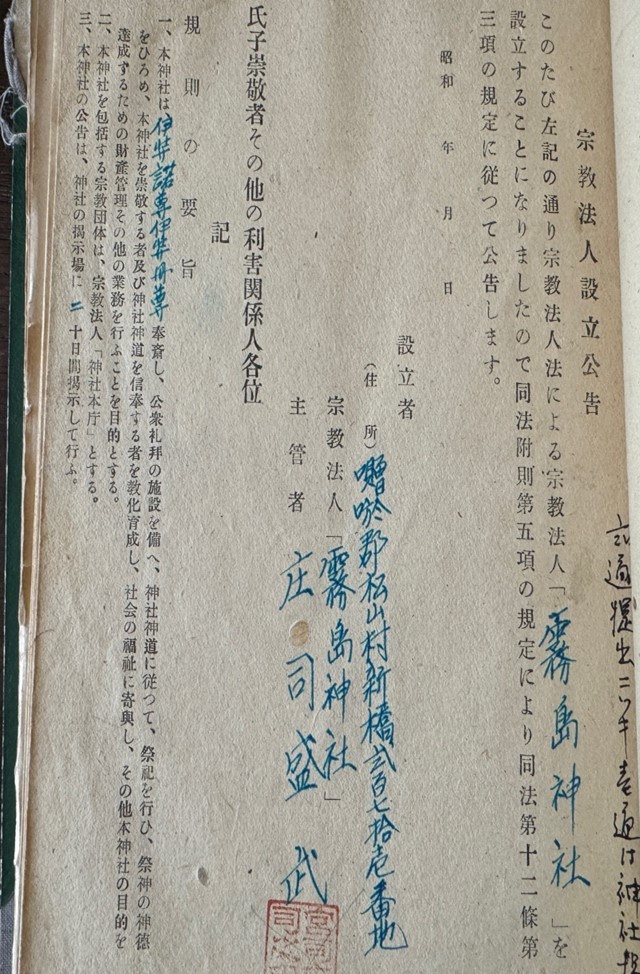 弍通提出ニツキ壱通は神社
宗教法人設立公告
このたび左記の通り宗教法人法による宗教法人「霧島神社」を
設立することになりましたので同法附則第五項の規定により同法第十二條第
三項の規定に従つて公告します。
昭和　年　月　日
設立者
（住　所）囎唹郡松山村新橋弍百七拾壱番地
宗教法人「霧島神社」
主管者　庄司盛武
氏子崇敬者その他の利害関係人各位
記
規則の要旨
一、本神社は伊弉諾尊伊弉冊尊奉斎し、公衆礼拝の施設を備へ、神社神道に従つて、祭祀を行ひ、祭神の神徳
をひろめ、本神社を崇敬する者及び神社神道を信奉する者を教化育成し、社会の福祉に寄與し、その他本神社の目的を
達成するための財産管理その他の業務を行ふことを目的とする。
二、本神社を包括する宗教団体は、宗教法人「神社本庁」とする。
三、本神社の公告は、神社の掲示場に二十日間掲示して行ふ。